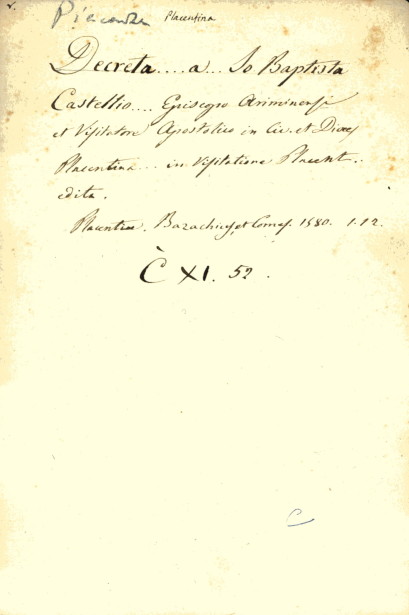 Piacenza Placentina
Decreta .... a ... Jo Baptista
Castellio .... Episcopo Ariminensi
et Visitatore Apostolico in Civ. et Dioces
Placentina ... in Visitatione Placent..
edita.
Placentiae. Bazachius, et Comes. 1580. 1.12.
C XI. 52.
C